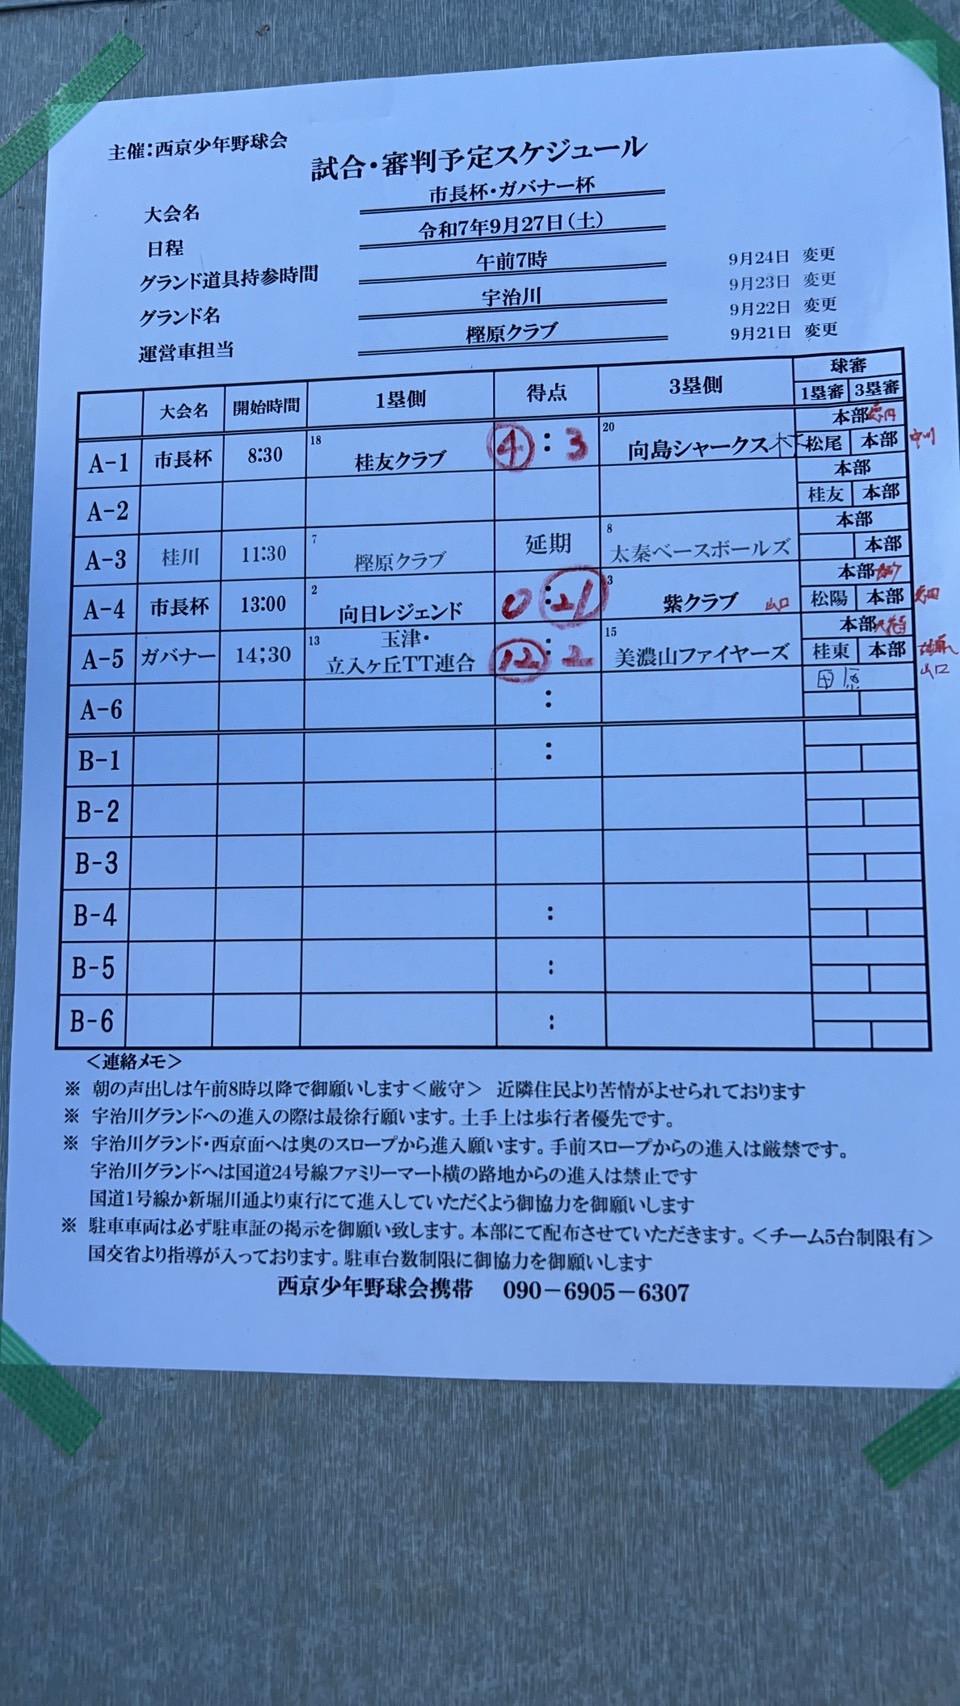 主催：西京少年野球会
試合・審判予定スケジュール
大会名 市長杯・ガバナー杯
日程 令和7年9月27日（土）
グランド道具持参時間 午前7時 9月24日 変更
9月23日 変更
グランド名 宇治川 9月22日 変更
運営車担当 樫原クラブ 9月21日 変更
球審
大会名 開始時間 1塁側 得点 3塁側 1塁審 3塁審
本部
A-1 市長杯 8:30 18 桂友クラブ 4 : 3 20 向島シャークス 松尾 本部 中川
本部
A-2 桂友 本部
本部
A-3 桂川 11:30 7 樫原クラブ 延期 8 太秦ベースボールズ 本部
本部
A-4 市長杯 13:00 2 向日レジェンド 0 : 21 3 紫クラブ 山口 松陽 本部
本部
A-5 ガバナー 14;30 13 玉津・
立入ヶ丘TT連合 12 : 2 15 美濃山ファイヤーズ 桂東 本部
山口
田原
A-6 :
B-1 :
B-2
B-3
B-4 :
B-5 :
B-6 :
＜連絡メモ＞
※ 朝の声出しは午前8時以降で御願いします＜厳守＞ 近隣住民より苦情がよせられております
※ 宇治川グランドへの進入の際は最徐行願います。土手上は歩行者優先です。
※ 宇治川グランド・西京面へは奥のスロープから進入願います。手前スロープからの進入は厳禁です。
宇治川グランドへは国道24号線ファミリーマート横の路地からの進入は禁止です
国道1号線か新堀川通より東行にて進入していただくよう御協力を御願いします
※ 駐車車両は必ず駐車証の掲示を御願い致します。本部にて配布させていただきます。＜チーム5台制限有＞
国交省より指導が入っております。駐車台数制限に御協力を御願いします
西京少年野球会携帯 090－6905－6307